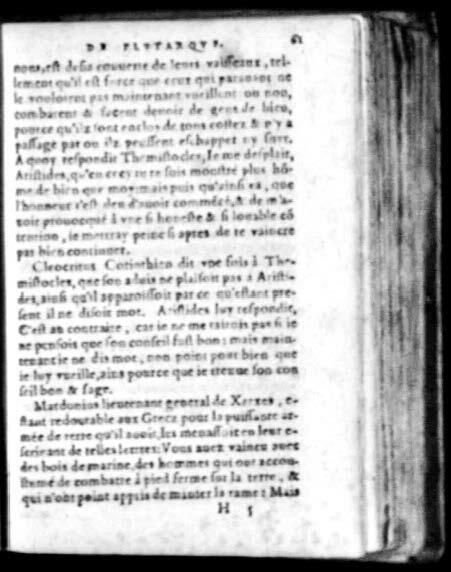 DE PLUTARQUE. 61
nous, est desia couuerte de leurs vaisseaux, tel-
lement qu'il est force que ceux qui parauant ne
le vouloient pas maintenant vueillent ou non,
combatent & facent deuoir de gens de bien,
pource qu'ilz sont enclos de tous costez & n'y a
passage par ou ilz peussent eschapper ny fuir.
A quoy respondit Themistocles, Ie me desplait,
Aristides, qu'en cecy tu te sois monstré plus hō-
me de bien que moy: mais puis qu'ainsi va, que
l'honneur t'est deu d'auoir commécé, & de m'a-
uoir prouocqué à vne si honeste & si louable cō
tention, ie mettray peine si apres de te vaincre
pas bien continuer.
Cleocritus Corinthien dit vne fois à The-
mistocles, que son aduis ne plaisoit pas à Aristi-
des, ainsi qu'il apparoissoit par ce qu'estant pre-
sent il ne disoit mot. Aristides luy respondit,
C'est au contraire, car ie ne me tairois pas si ie
ne pensois que son conseil fust bon: mais main-
tenant ie ne dis mot, non point pour bien que
ie luy vueille, ains pource que ie treuue son con
seil bon & sage.
Mardonius lieutenant general de Xerxes, e-
stant redoutable aux Grecz pour la puissante ar-
mée de terre qu'il auoit, les menassoit en leur e-
scriuant de telles lettres: Vous auez vaincu auec
des bois de marine, des hommes qui ont accou-
stumé de combatre à pied ferme sur la terre, &
qui n'ont point appris de manier la rame: Mais
H 5